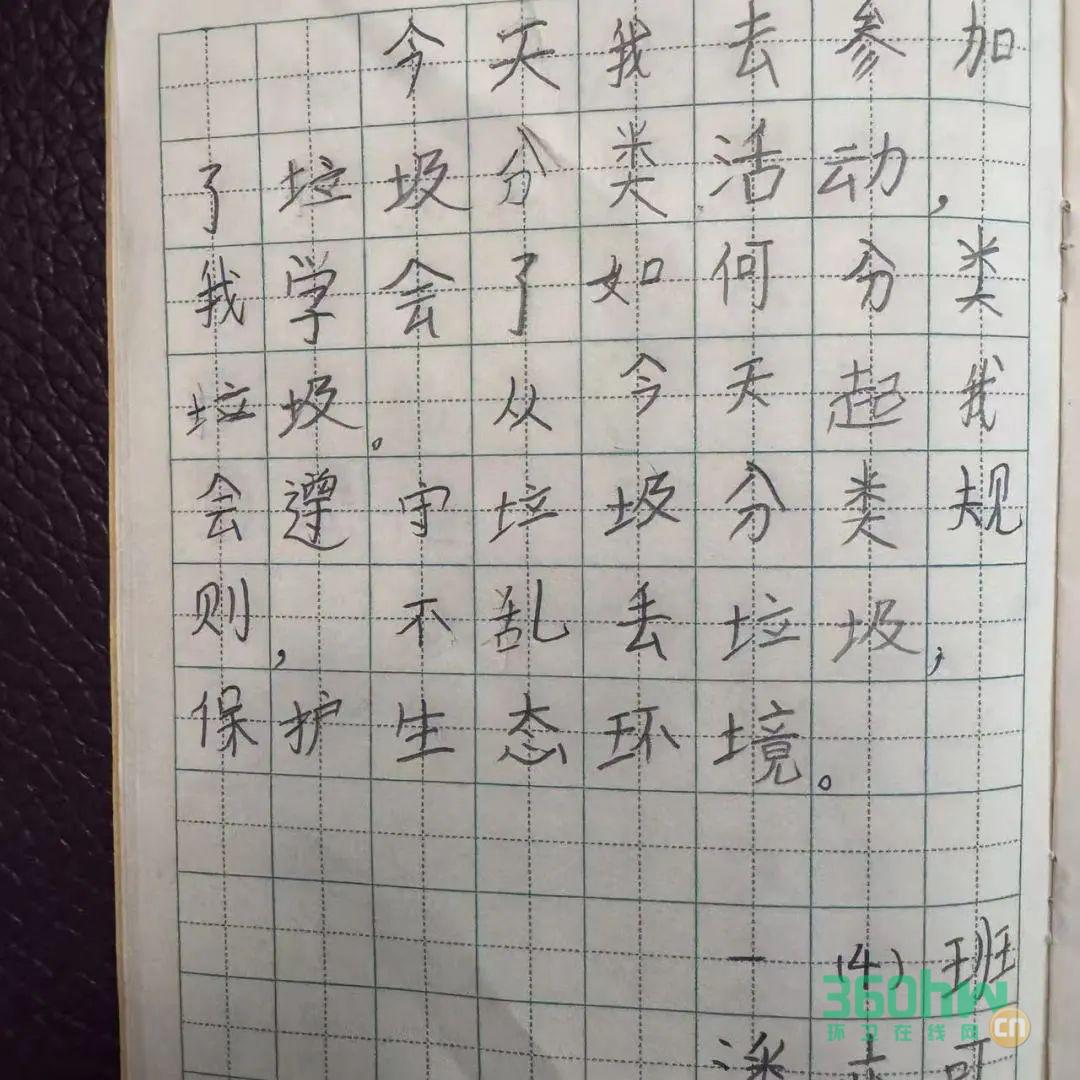 今天我去参加
了垃圾分类活动，
我学会了如何分类
垃圾。从今天起我
会遵守垃圾分类规
则，不乱丢垃圾，
保护生态环境。
一(4)班
360hw
环卫在线网 cn